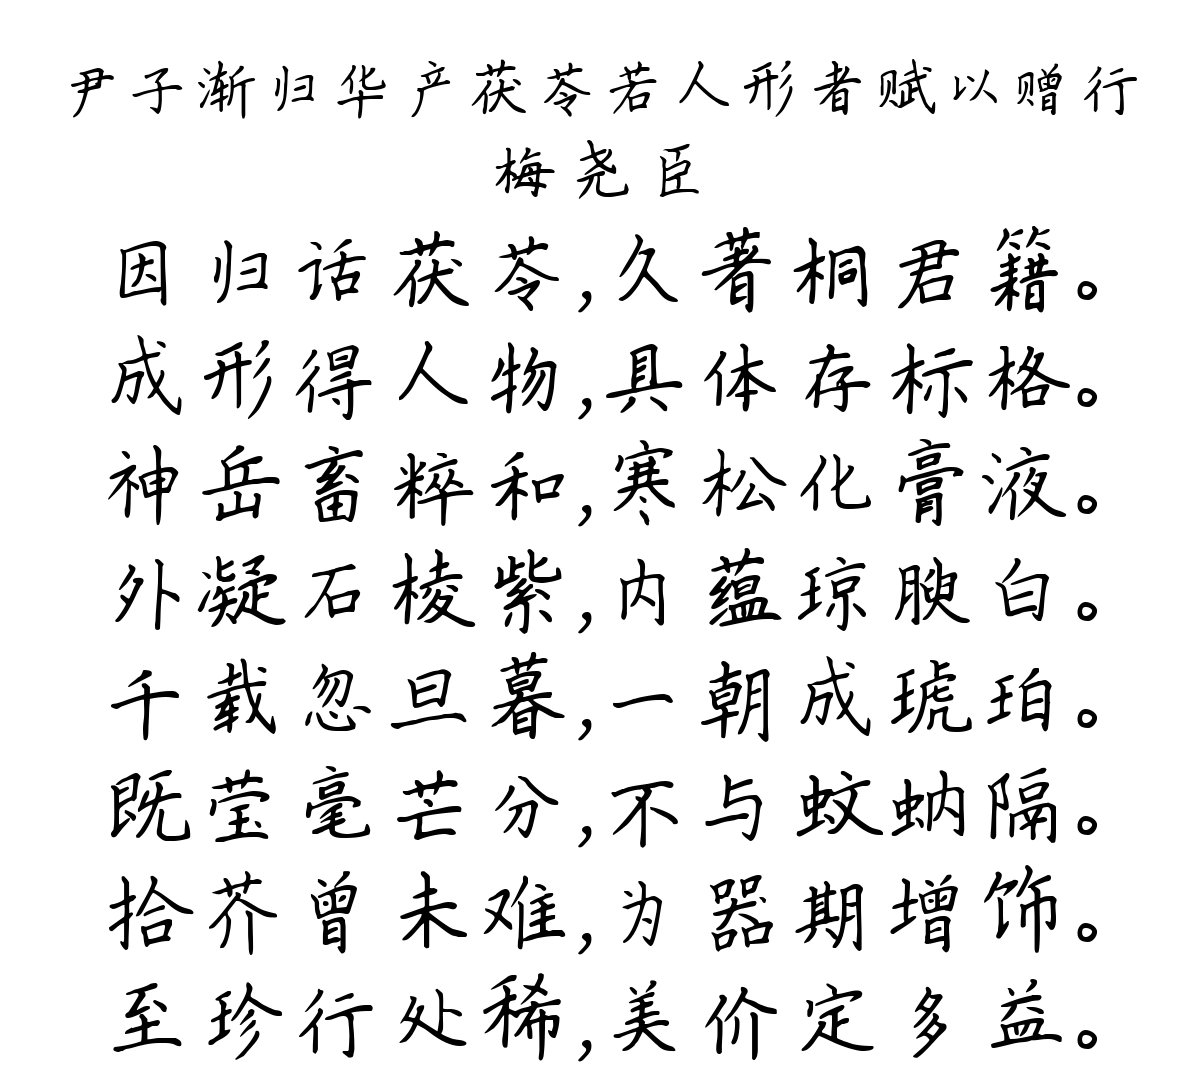 尹子渐归华产茯苓若人形者赋以赠行
梅尧臣
因归话茯苓,久著桐君籍。
成形得人物,具体存标格。
神岳畜粹和,寒松化膏液。
外凝石棱紫,内蕴琼腴白。
千载忽旦暮,一朝成琥珀。
既莹毫芒分,不与蚊蚋隔。
拾芥曾未难,为器期增饰。
至珍行处稀,美价定多益。